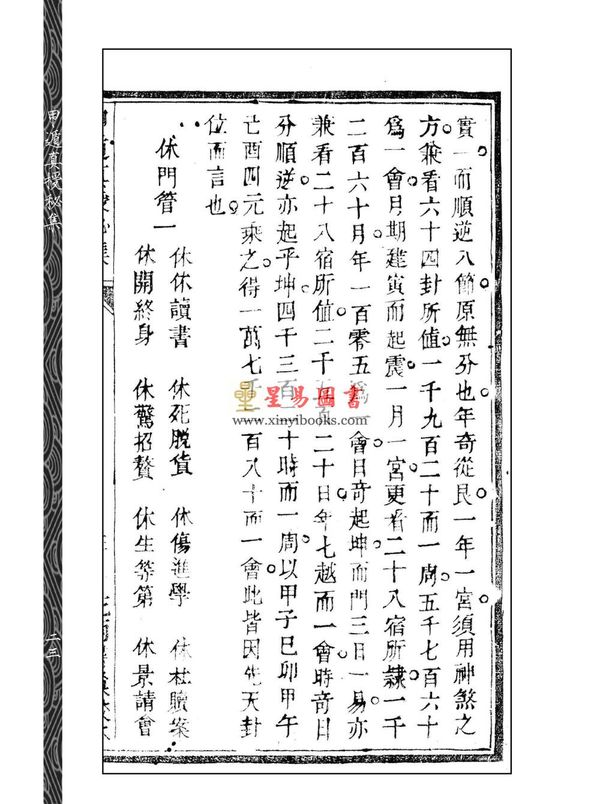 實一而順逆八節原無分也年奇從艮一年一宮須用神煞之
方兼看六十四卦所值一千九百二十而一周五千七百六十
爲一會月期建寅而起震一月一宮更看二十八宿所隸一千
二百六十月年一百零五爲一會日奇起坤而門三日一易亦
兼看二十八宿所值二千五百二十日年七越而一會時奇日
分順逆亦起乎坤四千三百二十時而一周以甲子己卯甲午
己酉四元乘之得一萬七千二百八十而一會此皆因先天卦
位而言也
休門管一
休休讀書 休死脫貨 休傷進學 休杜贖案
休開終身 休驚招贅 休生等第 休景請會
星易圖書
www.xinyibooks.com
甲遁真授秘集
二三